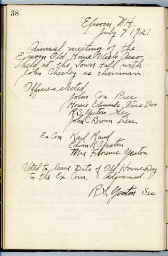 38
Epsom N.H.
July 7 1921
Annual meeting of the
Epsom Old Home Week Asso
held at the Town Hall with
John Chesley as chairman
Officers elected
John Cox Pres
R. S. Yeaton Sec
John C Brown Treas
Ex Com
Edwin R Yeaton
Mrs Florence Yeaton
Voted to leave Date of Old Home Day
to the Ex Com Adjourned
R. S. Yeaton Sec